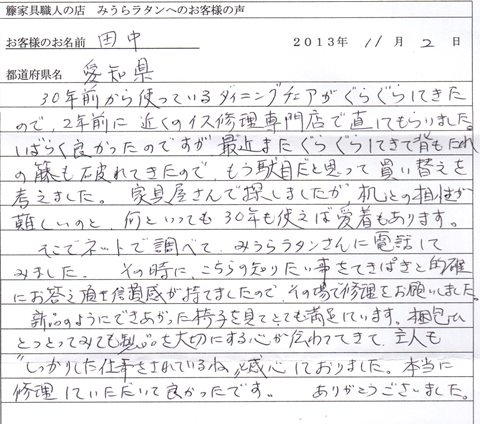 籐家具職人の店　みうらラタンへのお客様の声
お客様のお名前　田中　2013年 11月 2日
都道府県名　愛知県
30年前から使っているダイニングチェアがぐらぐらしてきた
ので、2年前に近くのイス修理専門店で直してもらいました。
しばらく良かったのですが最近またぐらぐらしてきて背もたれ
の籐も破れてきたので、もう駄目だと思って買い替えを
考えました。家具屋さんで探しましたが、机との相性が
難しいのと、何といっても30年も使えば愛着もあります。
そこでネットで調べて、みうらラタンさんに電話して
みました。その時に、こちらの知りたい事をてきぱきと的確
にお答え頂き信頼感が持てましたので、その場で修理をお願いしました。
新品のようにできあがった椅子を見てとても満足しています。梱包ひ
とつとってみても製品を大切にする心が伝わってきて、主人も
"しっかりした仕事をされているね"と感心しておりました。本当に
修理していただいて良かったです。　ありがとうございました。